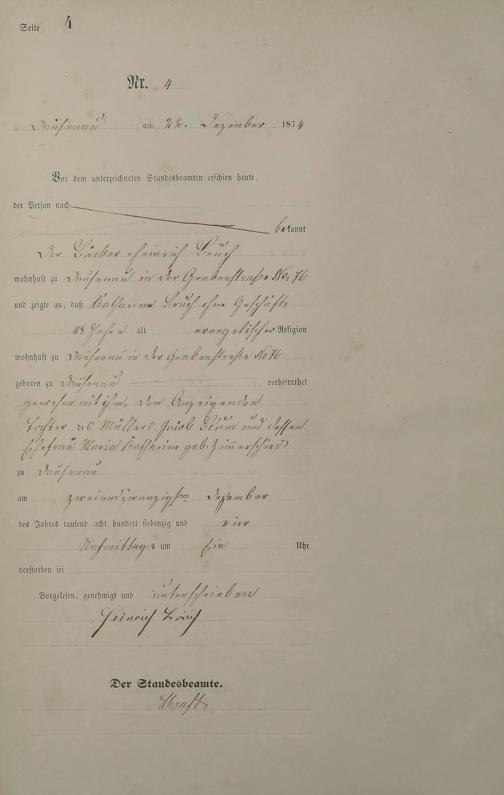 Seite 4
Nr. 4
Dausenau am 22. Dezember 1874
Vor dem unterzeichneten Standesbeamten erschien heute,
der Person nach
bekannt
Der Bäcker Heinrich Bruch
wohnhaft zu Dausenau in der Grabenstraße No 76
und zeigte an, daß Katharine Bruch ohne Geschäft
48 Jahre alt evangelischer Religion
wohnhaft zu Dausenau in der Grabenstraße No 76
geboren zu Dausenau verheirathet
gewesen mit ihm, dem Anzeigenden
Tochter des Müllers Jacob Blum und dessen
Ehefrau Maria Katharine geb. Zimmerschied
zu Dausenau
am zweiundzwanzigsten Dezember
des Jahres tausend acht hundert siebenzig und vier
Nachmittags um Ein Uhr
verstorben sei
Vorgelesen, genehmigt und unterschrieben
Heinrich Bruch
Der Standesbeamte.